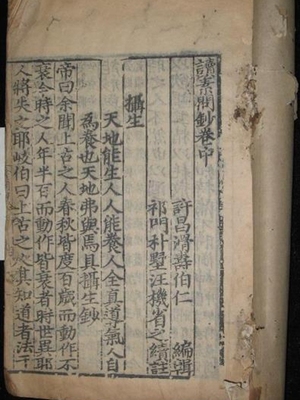 讀素問鈔卷中
許昌滑壽伯仁 編輯
祁門朴墅汪機省之續註
攝生
天地能生人人能養人全直道氣人自
為養也天地弗與焉具攝生鈔
帝曰余聞上古之人春秋皆度百歲而動作不
衰今時之人年半百而動作皆衰者時世異耶
人將失之耶岐伯曰上古之人其知道者法于